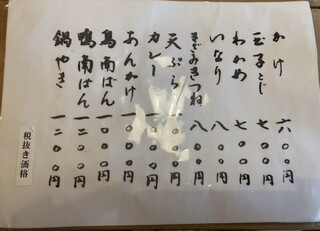 かけ 六〇〇円
玉子とじ 七〇〇円
わかめ 七〇〇円
いなり 八〇〇円
きざみきつね 八〇〇円
天ぷら 一〇〇〇円
カレー 一〇〇〇円
あんかけ 一〇〇〇円
鳥南ばん 一〇〇〇円
鴨南ばん 一二〇〇円
鍋やき 一二〇〇円
税抜き価格